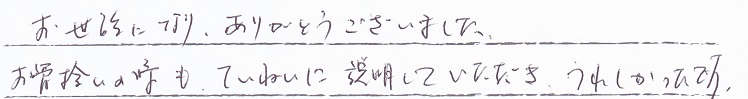 お世話になり、ありがとうございました。
お骨拾いの時も、ていねいに説明していただき、うれしかったです。